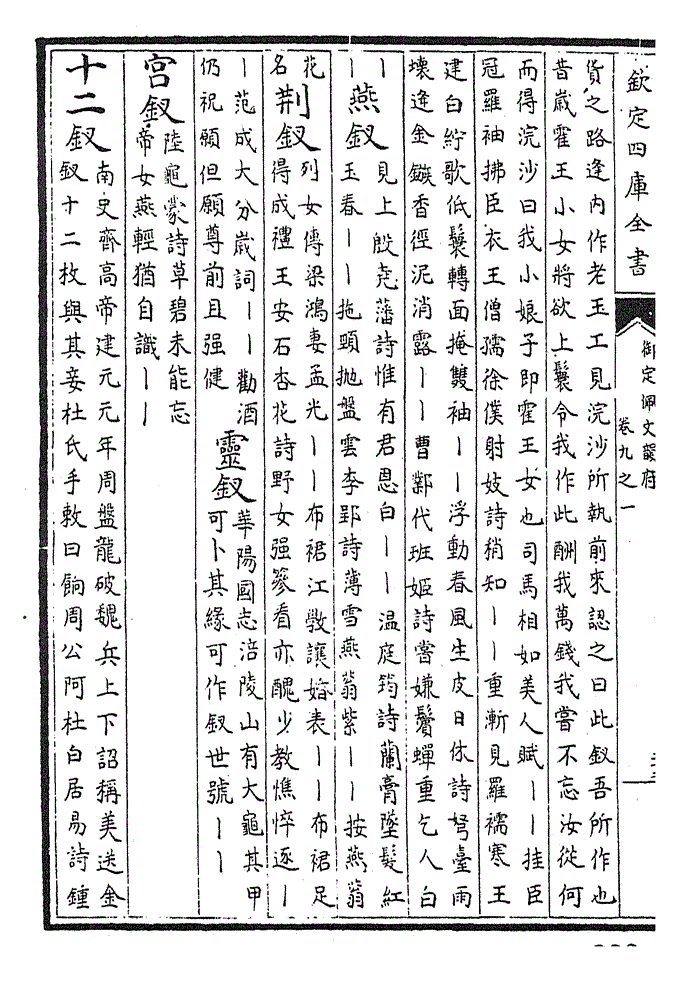 欽定四庫全書
御定佩文韻府
卷九之一
貨之路逢内作老玉工見浣沙所執前來認之曰此釵吾所作也
昔嵗霍王小女將欲上鬟令我作此酬我萬錢我嘗不忘汝從何
而得浣沙曰我小娘子即霍王女也司馬相如美人賦——挂臣
冠羅袖拂臣衣王僧孺徐僕射妓詩稍知——重漸見羅襦寒王
建白紵歌低鬟轉面掩雙袖——浮動春風生皮日休詩弩臺雨
壊逢金鏃香徑泥消露——曹鄴代班姬詩嘗嫌鬢蟬重乞人白
—
—
燕釵
見上殷堯藩詩惟有君恩白——温庭筠詩蘭膏墜髮紅
玉春——拖頸抛盤雲李郢詩薄雪燕蓊紫——按燕蓊
花
名
荆釵
列女傳梁鴻妻孟光——布裙江斆讓婚表——布裙足
得成禮王安石杏花詩野女强簪看亦醜少教憔悴逐—
—范成大分嵗詞——勸酒
仍祝願但願尊前且强健
靈釵
華陽國志涪陵山有大龜其甲
可卜其緣可作釵世號——
宫釵
陸龜蒙詩草碧未能忘
帝女燕輕猶自識——
十二釵
南史齊高帝建元元年周盤龍破魏兵上下詔稱美送金
釵十二枚與其妾杜氏手敕曰餉周公阿杜白居易詩鍾